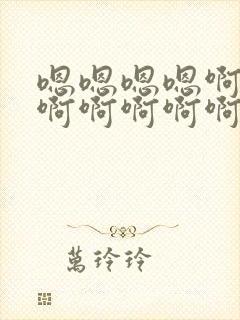 嗯嗯嗯嗯啊
啊啊啊啊啊
萬玲玲